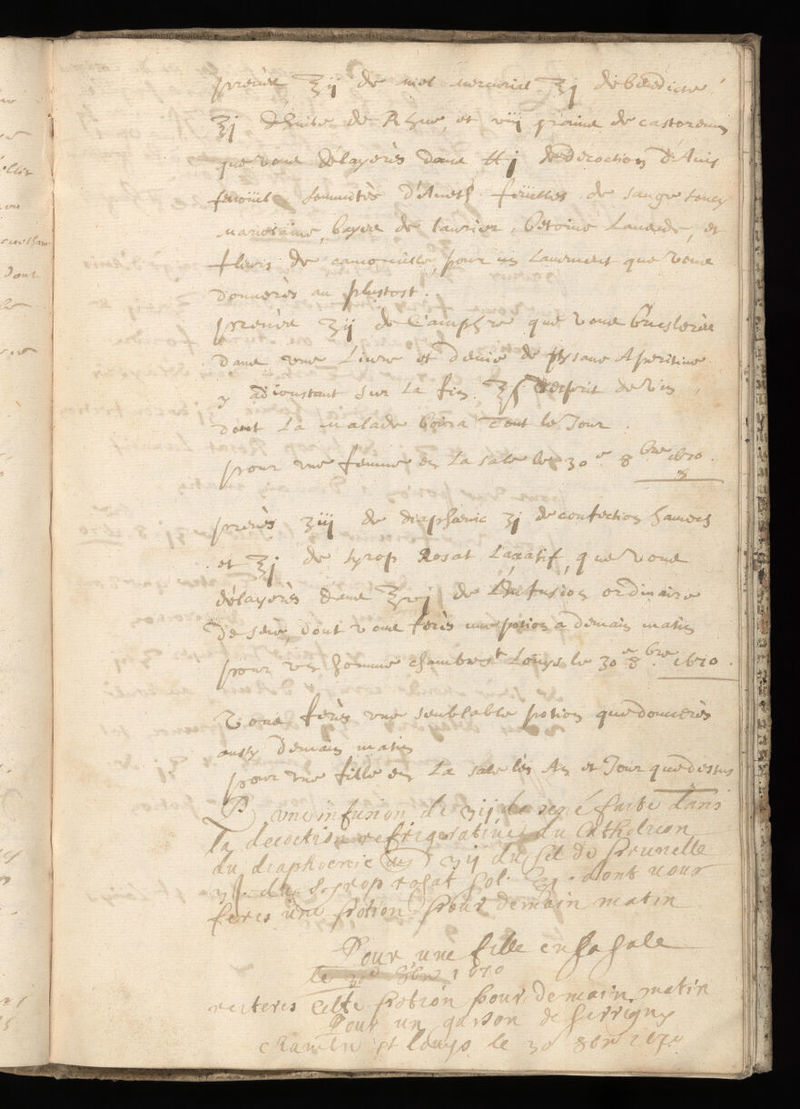 prenés ʒij de miel mercurial ʒj debenedicte
ʒj dhuile de Rhue, et viij graine de castoreum
que vous délayerés dans ℔j dedecoction d'Anis
fenouil sommités d'Aneth feuilles de sauge
mariolaine, bayes de laurier, betoine Lavande, et
fleurs de camomille, pour un Lavement que vous
donnerés au plustost.
prenés ʒij de Camphre que vous bruslerés
dans une Livre et demie de ptysane Aperitive
y adioustant sur la fin ʒſ desprit de vin
dont La malade boira tout le Jour.
pour une femme en La sale le 30e 8bre 1670.
prenés ʒiij de diaphœnic ʒj deconfection hamech
et ʒj de syrop Rosat Laxatif, que vous
délayerés dans ʒvj de Linfusion ordinaire
de sené, dont vous ferés une potion a demain matin
pour un homme chambre st Louys le 30e 8bre 1670.
Vous ferés une semblable potion que donnerés
aussy demain matin
pour une fille en La sale les An et Jour que dessus
une infusion de ʒij de sené faite dans
la decoction refrigerative du Catholicon
du diaphoenic ʒij du sel de prunelle
du syrop rosat sol. ʒj. dont vous
ferés une potion pour demain matin
Pour une fille en la sale
le 8bre 1670
reiteres cette potion pour demain matin
Pour un garson de
chambre st louys le 30 8bre 1670